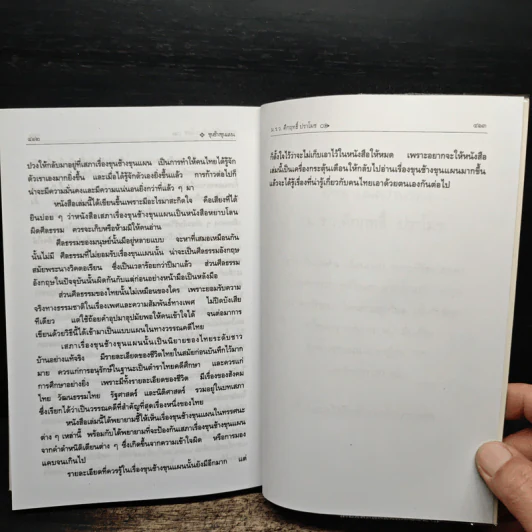 ๔๒๒ ❖ ขุนช้างขุนแผน
ปวงให้กลับมาอยู่ที่เสภาเรื่องขุนช้างขุนแผน เป็นการทำให้คนไทยได้รู้จัก
ตัวเราเองมากยิ่งขึ้น และเมื่อได้รู้จักตัวเองยิ่งขึ้นแล้ว การก้าวต่อไปก็
น่าจะมีความมั่นคงและมีความแน่นอนยิ่งกว่าที่แล้ว ๆ มา
หนังสือเล่มนี้ได้เขียนขึ้นเพราะมีอะไรมาสะกิดใจ คือเสียงที่ได้
ยินบ่อย ๆ ว่าหนังสือเสภาเรื่องขุนช้างขุนแผนเป็นหนังสือหยาบโลน
ผิดศีลธรรม ควรจะเก็บหรือห้ามมิให้คนอ่าน
ศีลธรรมของมนุษย์นั้นมีอยู่หลายแบบ จะหาที่เสมอเหมือนกัน
นั้นไม่มี ศีลธรรมที่ไม่ยอมรับเรื่องขุนช้างขุนแผนนั้น น่าจะเป็นศีลธรรมอังกฤษ
สมัยพระนางวิคตอเรียน ซึ่งเป็นเวลาร้อยกว่าปีมาแล้ว ส่วนศีลธรรม
อังกฤษในปัจจุบันนั้นผิดกันกับแต่ก่อนอย่างหน้ามือเป็นหลังมือ
ส่วนศีลธรรมของไทยนั้นไม่เหมือนของใคร เพราะยอมรับความ
จริงทางธรรมชาติในเรื่องเพศและความสัมพันธ์ทางเพศ ไม่ปิดบังเสีย
ทีเดียว แต่ใช้ถ้อยคำอุปมาอุปมัยพอให้คนเข้าใจได้ จนต่อมาการ
เขียนด้วยวิธีนี้ได้เข้ามาเป็นแบบแผนในทางวรรณคดีไทย
เสภาเรื่องขุนช้างขุนแผนนั้นเป็นนิยายของไทยระดับชาว
บ้านอย่างแท้จริง มีรายละเอียดของชีวิตไทยในสมัยก่อนบันทึกไว้มาก
มาย ควรแก่การอนุรักษ์ในฐานะเป็นตำราไทยคดีศึกษา และควรแก่
การศึกษาอย่างยิ่ง เพราะมีทั้งรายละเอียดของชีวิต มีเรื่องของสังคม
ไทย วัฒนธรรมไทย รัฐศาสตร์ และนิติศาสตร์ รวมอยู่ในบทเสภา
ซึ่งเรียกได้ว่าเป็นวรรณคดีที่สำคัญที่สุดเรื่องหนึ่งของไทย
หนังสือเล่มนี้ได้พยายามชี้ให้เห็นเรื่องขุนช้างขุนแผนในทรรศนะ
ต่าง ๆ เหล่านี้ พร้อมกับได้พยายามที่จะป้องกันเสภาเรื่องขุนช้างขุนแผน
จากคำตำหนิติเตียนต่าง ๆ ซึ่งเกิดขึ้นจากความเข้าใจผิด หรือการมอง
แคบจนเกินไป
รายละเอียดที่ควรรู้ในเรื่องขุนช้างขุนแผนนั้นยังมีอีกมาก แต่
ม.ร.ว. คึกฤทธิ์ ปราโมช ๔๒๓
ก็ตั้งใจไว้ว่าจะไม่เก็บเอาไว้ในหนังสือให้หมด เพราะอยากจะให้หนังสือ
เล่มนี้เป็นเครื่องกระตุ้นเตือนให้กลับไปอ่านเรื่องขุนช้างขุนแผนมากขึ้น
แล้วจะได้รู้เรื่องที่น่ารู้เกี่ยวกับคนไทยเอาด้วยตนเองกันต่อไป